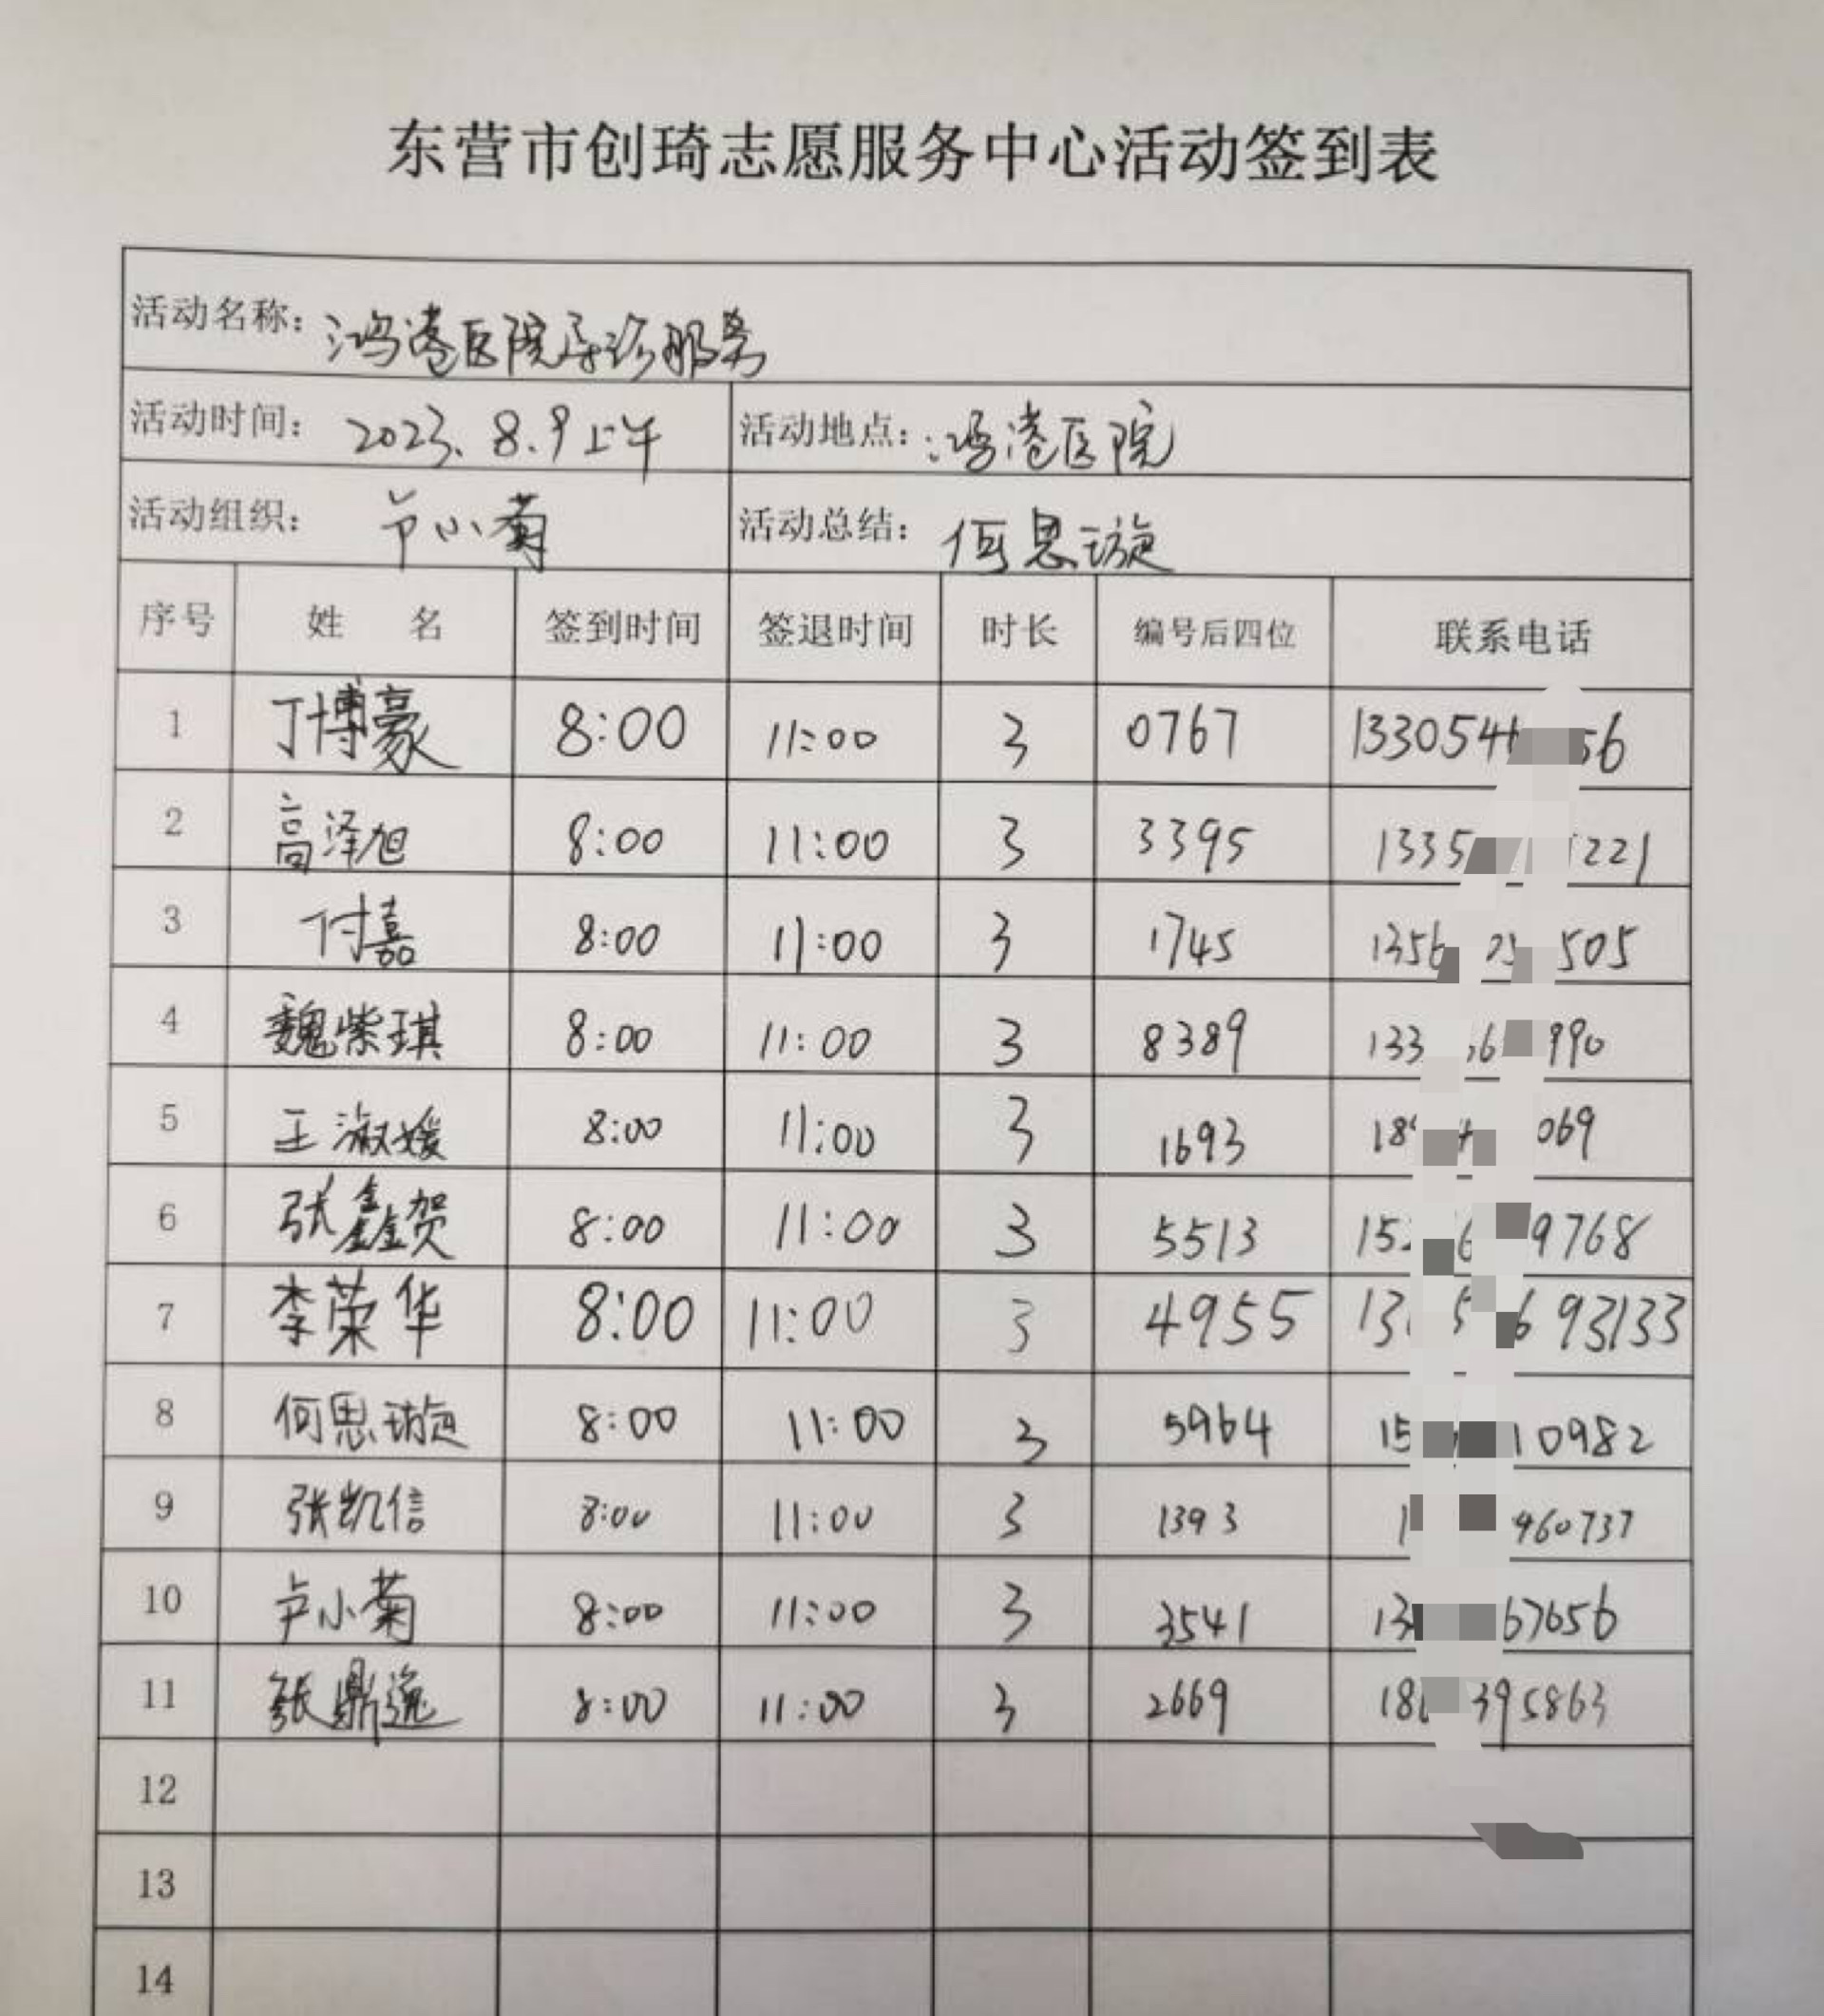 东营市创琦志愿服务中心活动签到表
活动名称：鸿港医院导诊服务
活动时间：2023.8.9上午 活动地点：鸿港医院
活动组织：卢小菊 活动总结：何思璇
序号 姓 名 签到时间 签退时间 时长 编号后四位 联系电话
1 丁博豪 8:00 11:00 3 0767 133054 56
2 高泽旭 8:00 11:00 3 3395 1335 221
3 付嘉 8:00 11:00 3 1745 1356 505
4 魏紫琪 8:00 11:00 3 8389 133 990
5 王淑媛 8:00 11:00 3 1693 18 069
6 张鑫贺 8:00 11:00 3 5513 15 9768
7 李荣华 8:00 11:00 3 4955 13 693133
8 何思璇 8:00 11:00 3 5964 15 10982
9 张凯信 8:00 11:00 3 1393 1 960737
10 卢小菊 8:00 11:00 3 3541 13 67656
11 张鼎逸 8:00 11:00 3 2669 18 395863
12
13
14